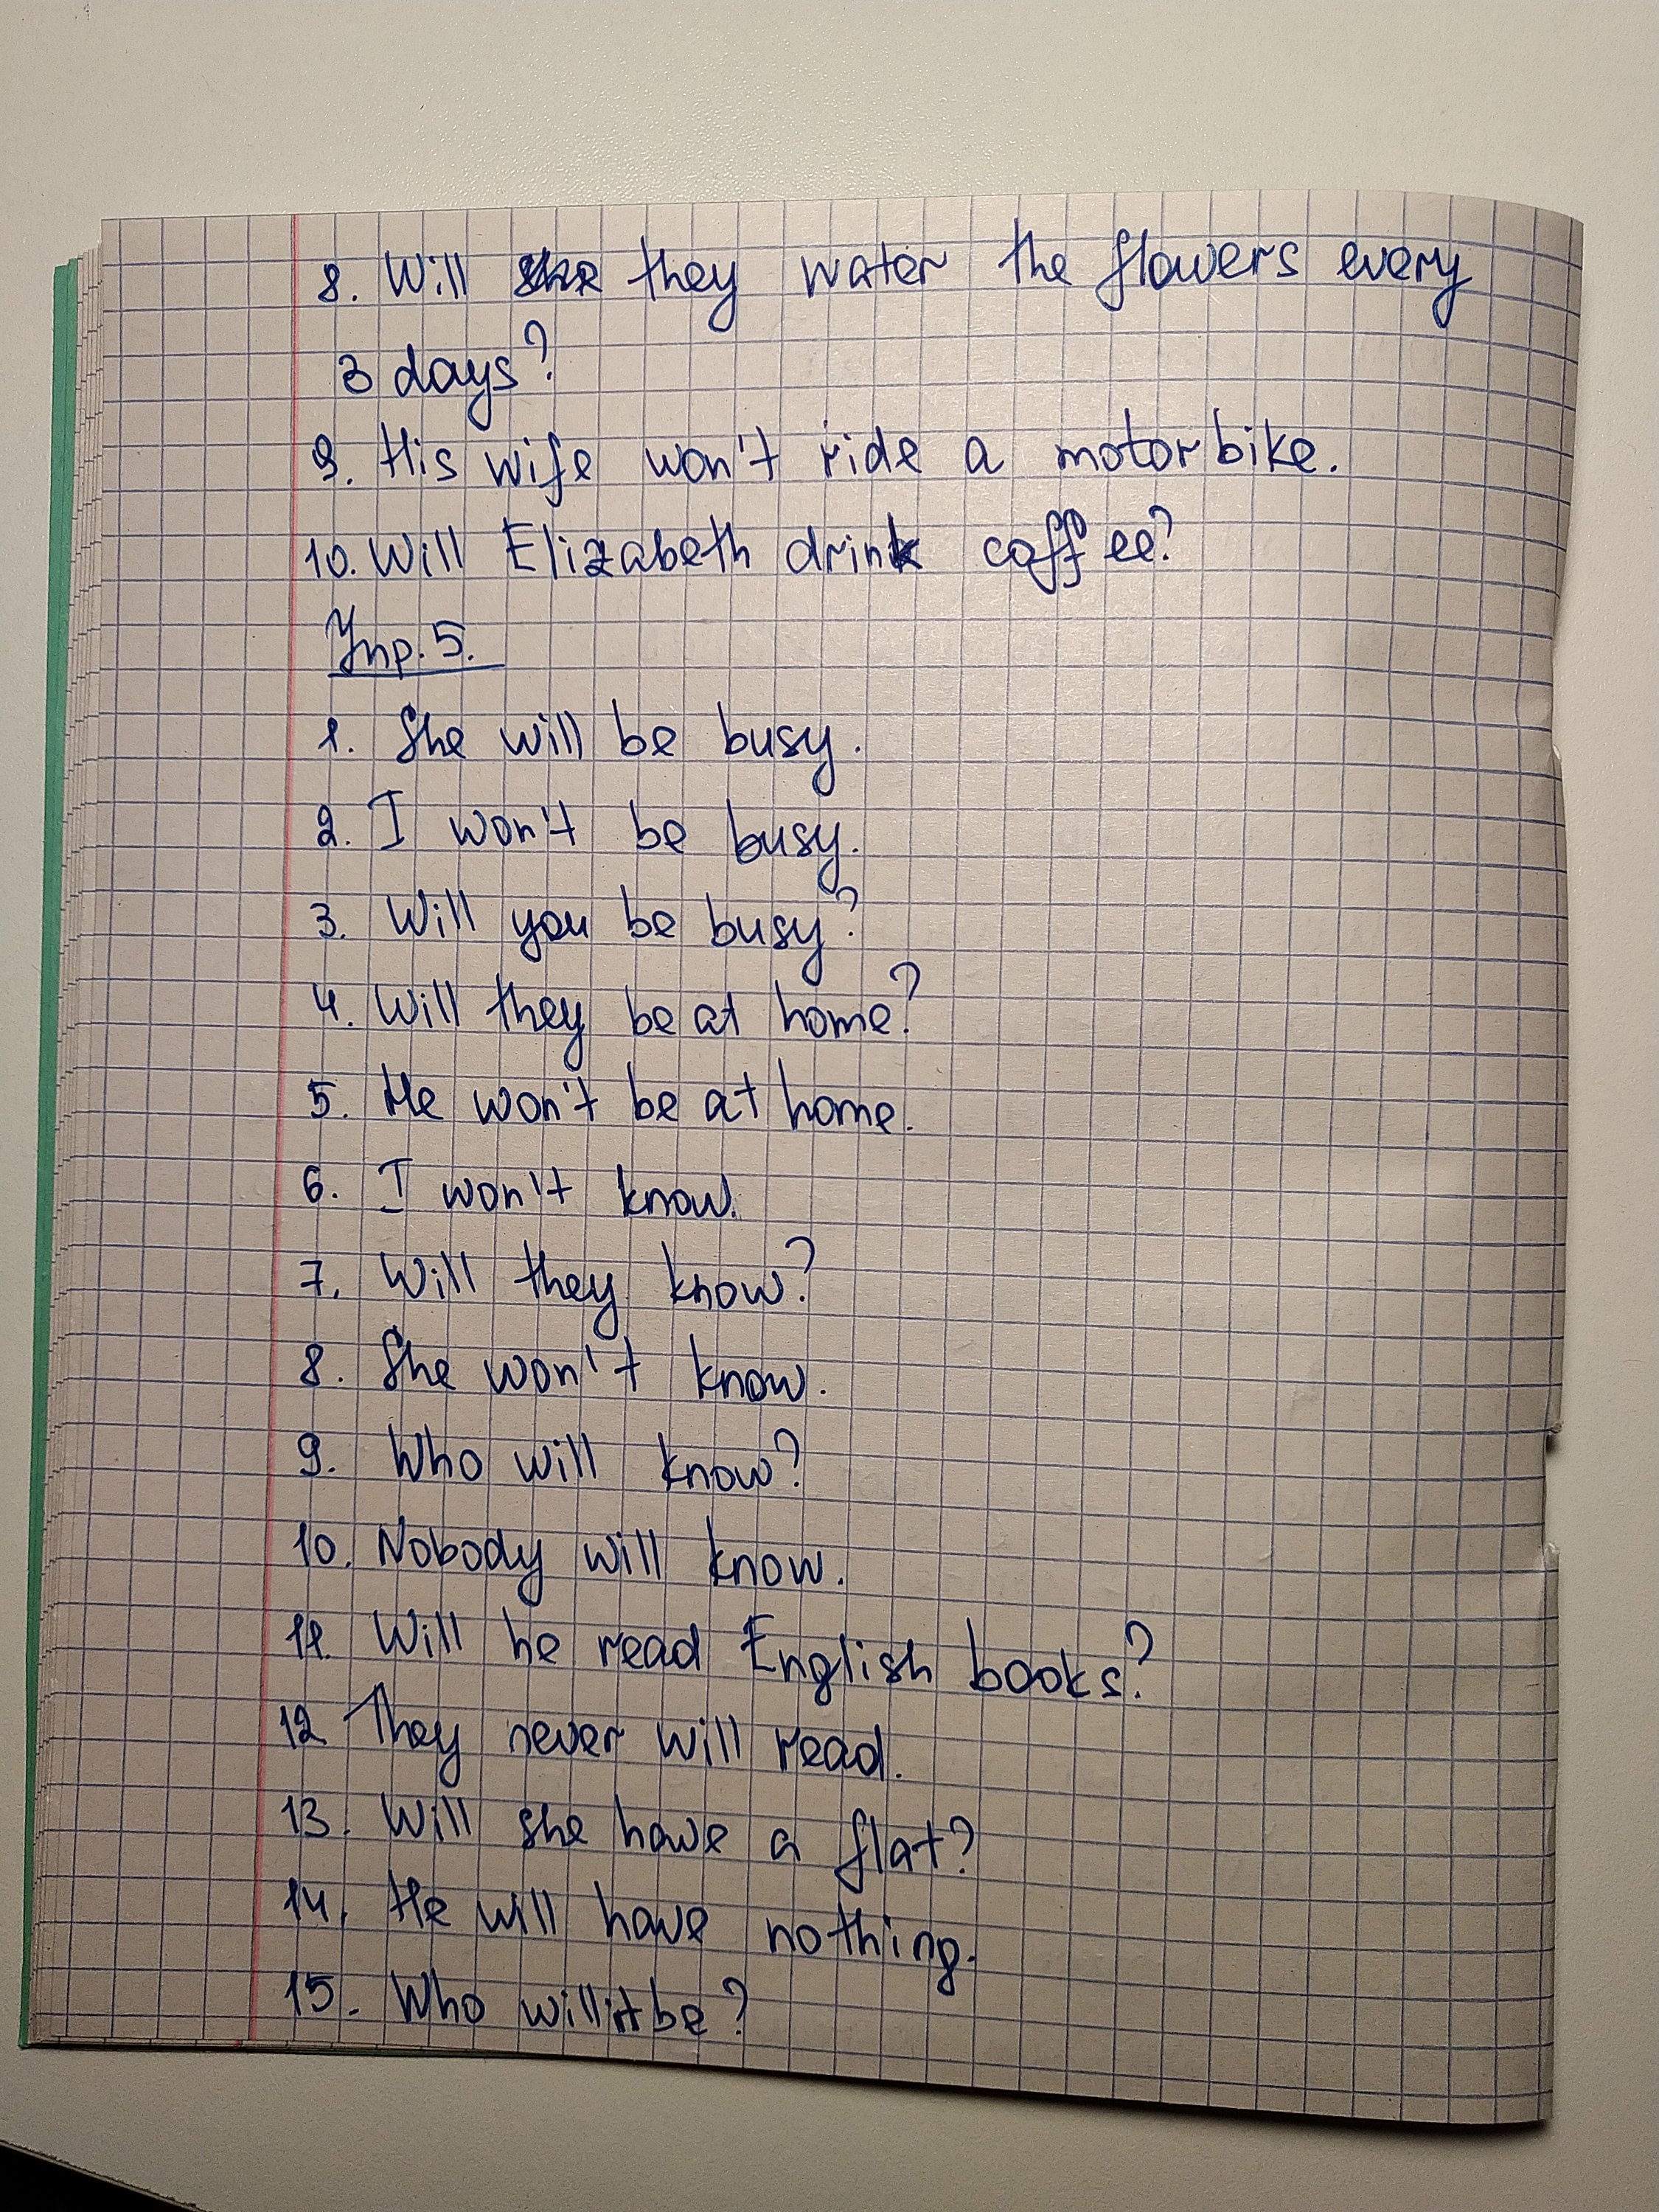 8. Will they water the flowers every
3 days?
9. His wife won't ride a motorbike.
10. Will Elizabeth drink coffee?
Упр. 5.
1. She will be busy.
2. I won't be busy.
3. Will you be busy?
4. Will they be at home?
5. He won't be at home.
6. I won't know.
7. Will they know?
8. She won't know.
9. Who will know?
10. Nobody will know.
11. Will he read English books?
12 They never will read.
13. Will she have a flat?
14. He will have nothing.
15. Who will it be?